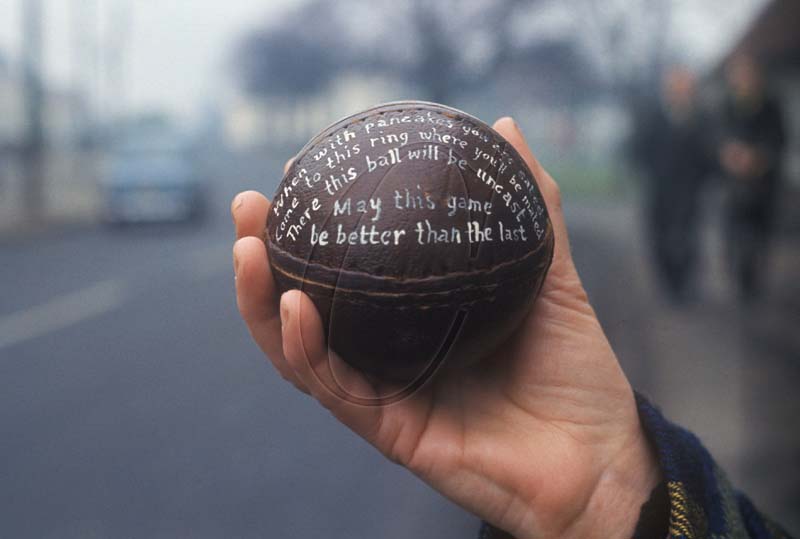 When with pancakes you are sated
Come to this ring where you'll be mated
There this ball will be uncast
May this game
be better than the last